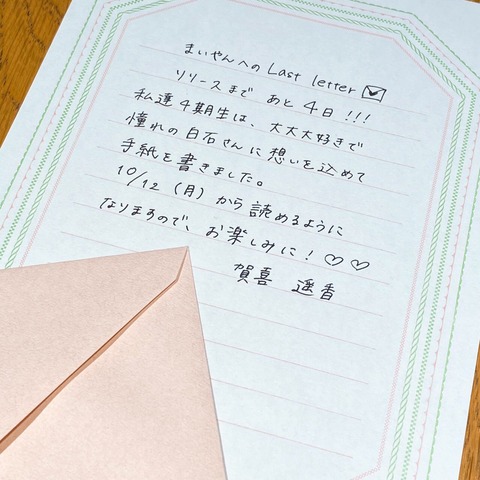 まいやんへのLast letter
リリースまで あと4日!!!
私達4期生は、大大大好きで
憧れの白石さんに想いを込めて
手紙を書きました。
10/12 (月) から読めるように
なりますので、お楽しみに!♡♡
賀喜 遥香